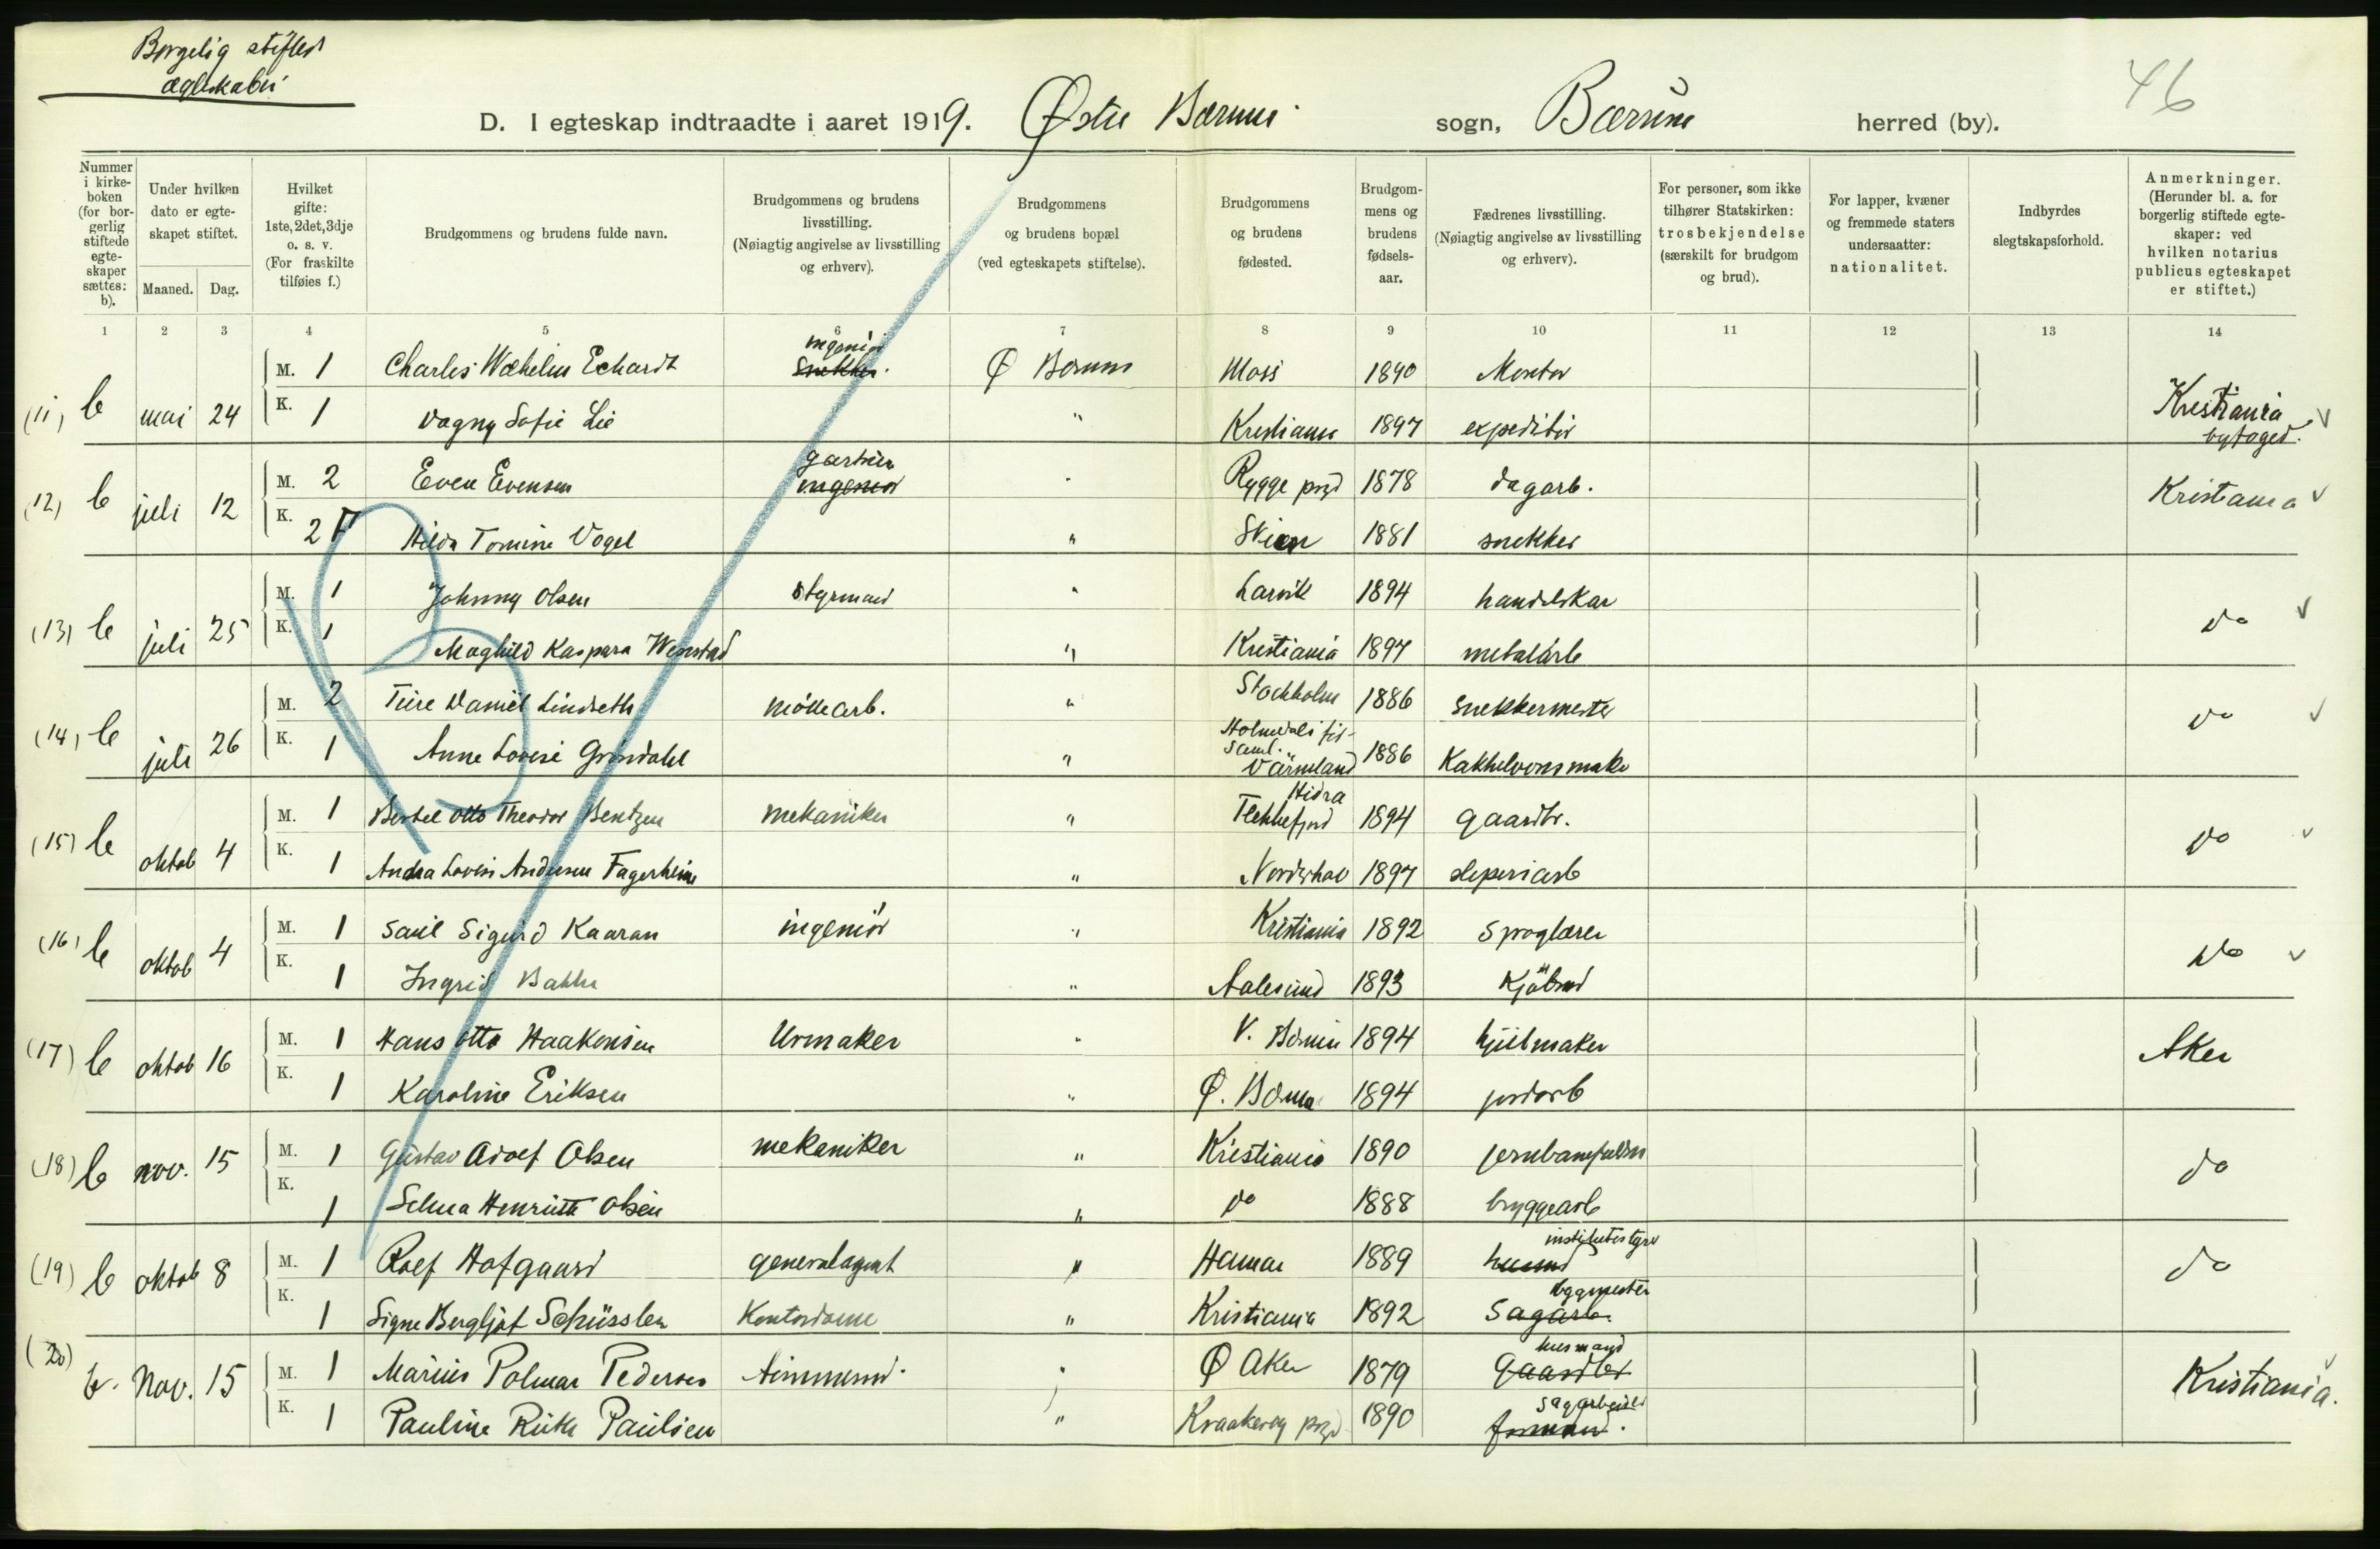 Borgelig stiftede
ægteskaber
46
D. I egteskap indtraadte i aaret 1919. Østre Bærums sogn, Bærum herred (by).
Nummer i kirke-boken (for bor-gerlig stiftede egte-skaper sættes: b).
Under hvilken dato er egte-skapet stiftet.
Maaned. Dag.
Hvilket gifte: 1ste, 2det, 3dje o. s. v. (For fraskilte tilføies f.)
Brudgommens og brudens fulde navn.
Brudgommens og brudens livsstilling. (Nøiagtig angivelse av livsstilling og erhverv).
Brudgommens og brudens bopæl (ved egteskapets stiftelse).
Brudgommens og brudens fødested.
Brudgom-mens og brudens fødsels-aar.
Fædrenes livsstilling. (Nøiagtig angivelse av livsstilling og erhverv).
For personer, som ikke tilhører Statskirken: trosbekjendelse (særskilt for brudgom og brud).
For lapper, kvæner og fremmede staters undersaatter: nationalitet.
Indbyrdes slegtskapsforhold.
Anmerkninger. (Herunder bl. a. for borgerlig stiftede egte-skaper: ved hvilken notarius publicus egteskapet er stiftet.)
1 2 3 4 5 6 7 8 9 10 11 12 13 14
M. 1 Charles Wilhelm Echardt ingeniør Snekker. Ø Bærum Moss 1890 Montør
(11) b mai 24 K. 1 Dagny Sofie Lie " Kristiania 1897 expeditør Kristiania byfoged.
M. 2 Even Evensen gartner ingeniør " Rygge prgd 1878 dagarb.
(12) b juli 12 K. 2 F Hilda Tomine Vogel " Skien 1881 snekker Kristiania
M. 1 Johnny Olsen styrmand " Larvik 1894 handelskar
(13) b juli 25 K. 1 Maghild Kaspara Wenstad " Kristiania 1897 metalarb do
M. 2 Ture Daniel Lindseth møllearb. " Stockholm 1886 Snekkermester
(14) b juli 26 K. 1 Anne Lovise Gröndahl " Värmeland 1886 Kakkelovnsmaker do
M. 1 Bertel Otto Theodor Bentzen mekaniker " Hidra Flekkefjord 1894 gaardbr.
(15) b oktob 4 K. 1 Andrea Lovise Andersen Fagerheim " Norderhov 1897 sliperiarb do
M. 1 Saul Sigurd Kaaran ingeniør " Kristiania 1892 Sproglærer
(16) b oktob 4 K. 1 Ingrid Bakke " Aalesund 1893 Kjöbmd do
M. 1 Hans Otto Haakensen Urmaker " V. Bærum 1894 hjulmaker
(17) b oktob 16 K. 1 Karoline Eriksen " Ø. Bærum 1894 jordarb Aker
M. 1 Gustav Adolf Olsen mekaniker " Kristiania 1890
(18) b nov. 15 K. 1 Selma Henriette Olsen " do 1888 bryggearb do
M. 1 Rolf Hofgaard generalagent " Hamar 1889 institutbestyrer husmd
(19) b oktob 8 K. 1 Signe Bergljot Schüssler Kontordame " Kristiania 1892 byggmester Sagarb. do
M. 1 Marius Polmar Pedersen tømmermd. " Ø Aker 1879 husmand Gaardbr
(20) b. Nov. 15 K. 1 Pauline Ruth Paulsen " Kraakerøy prgd 1890 sagarbeider formand. Kristiania.